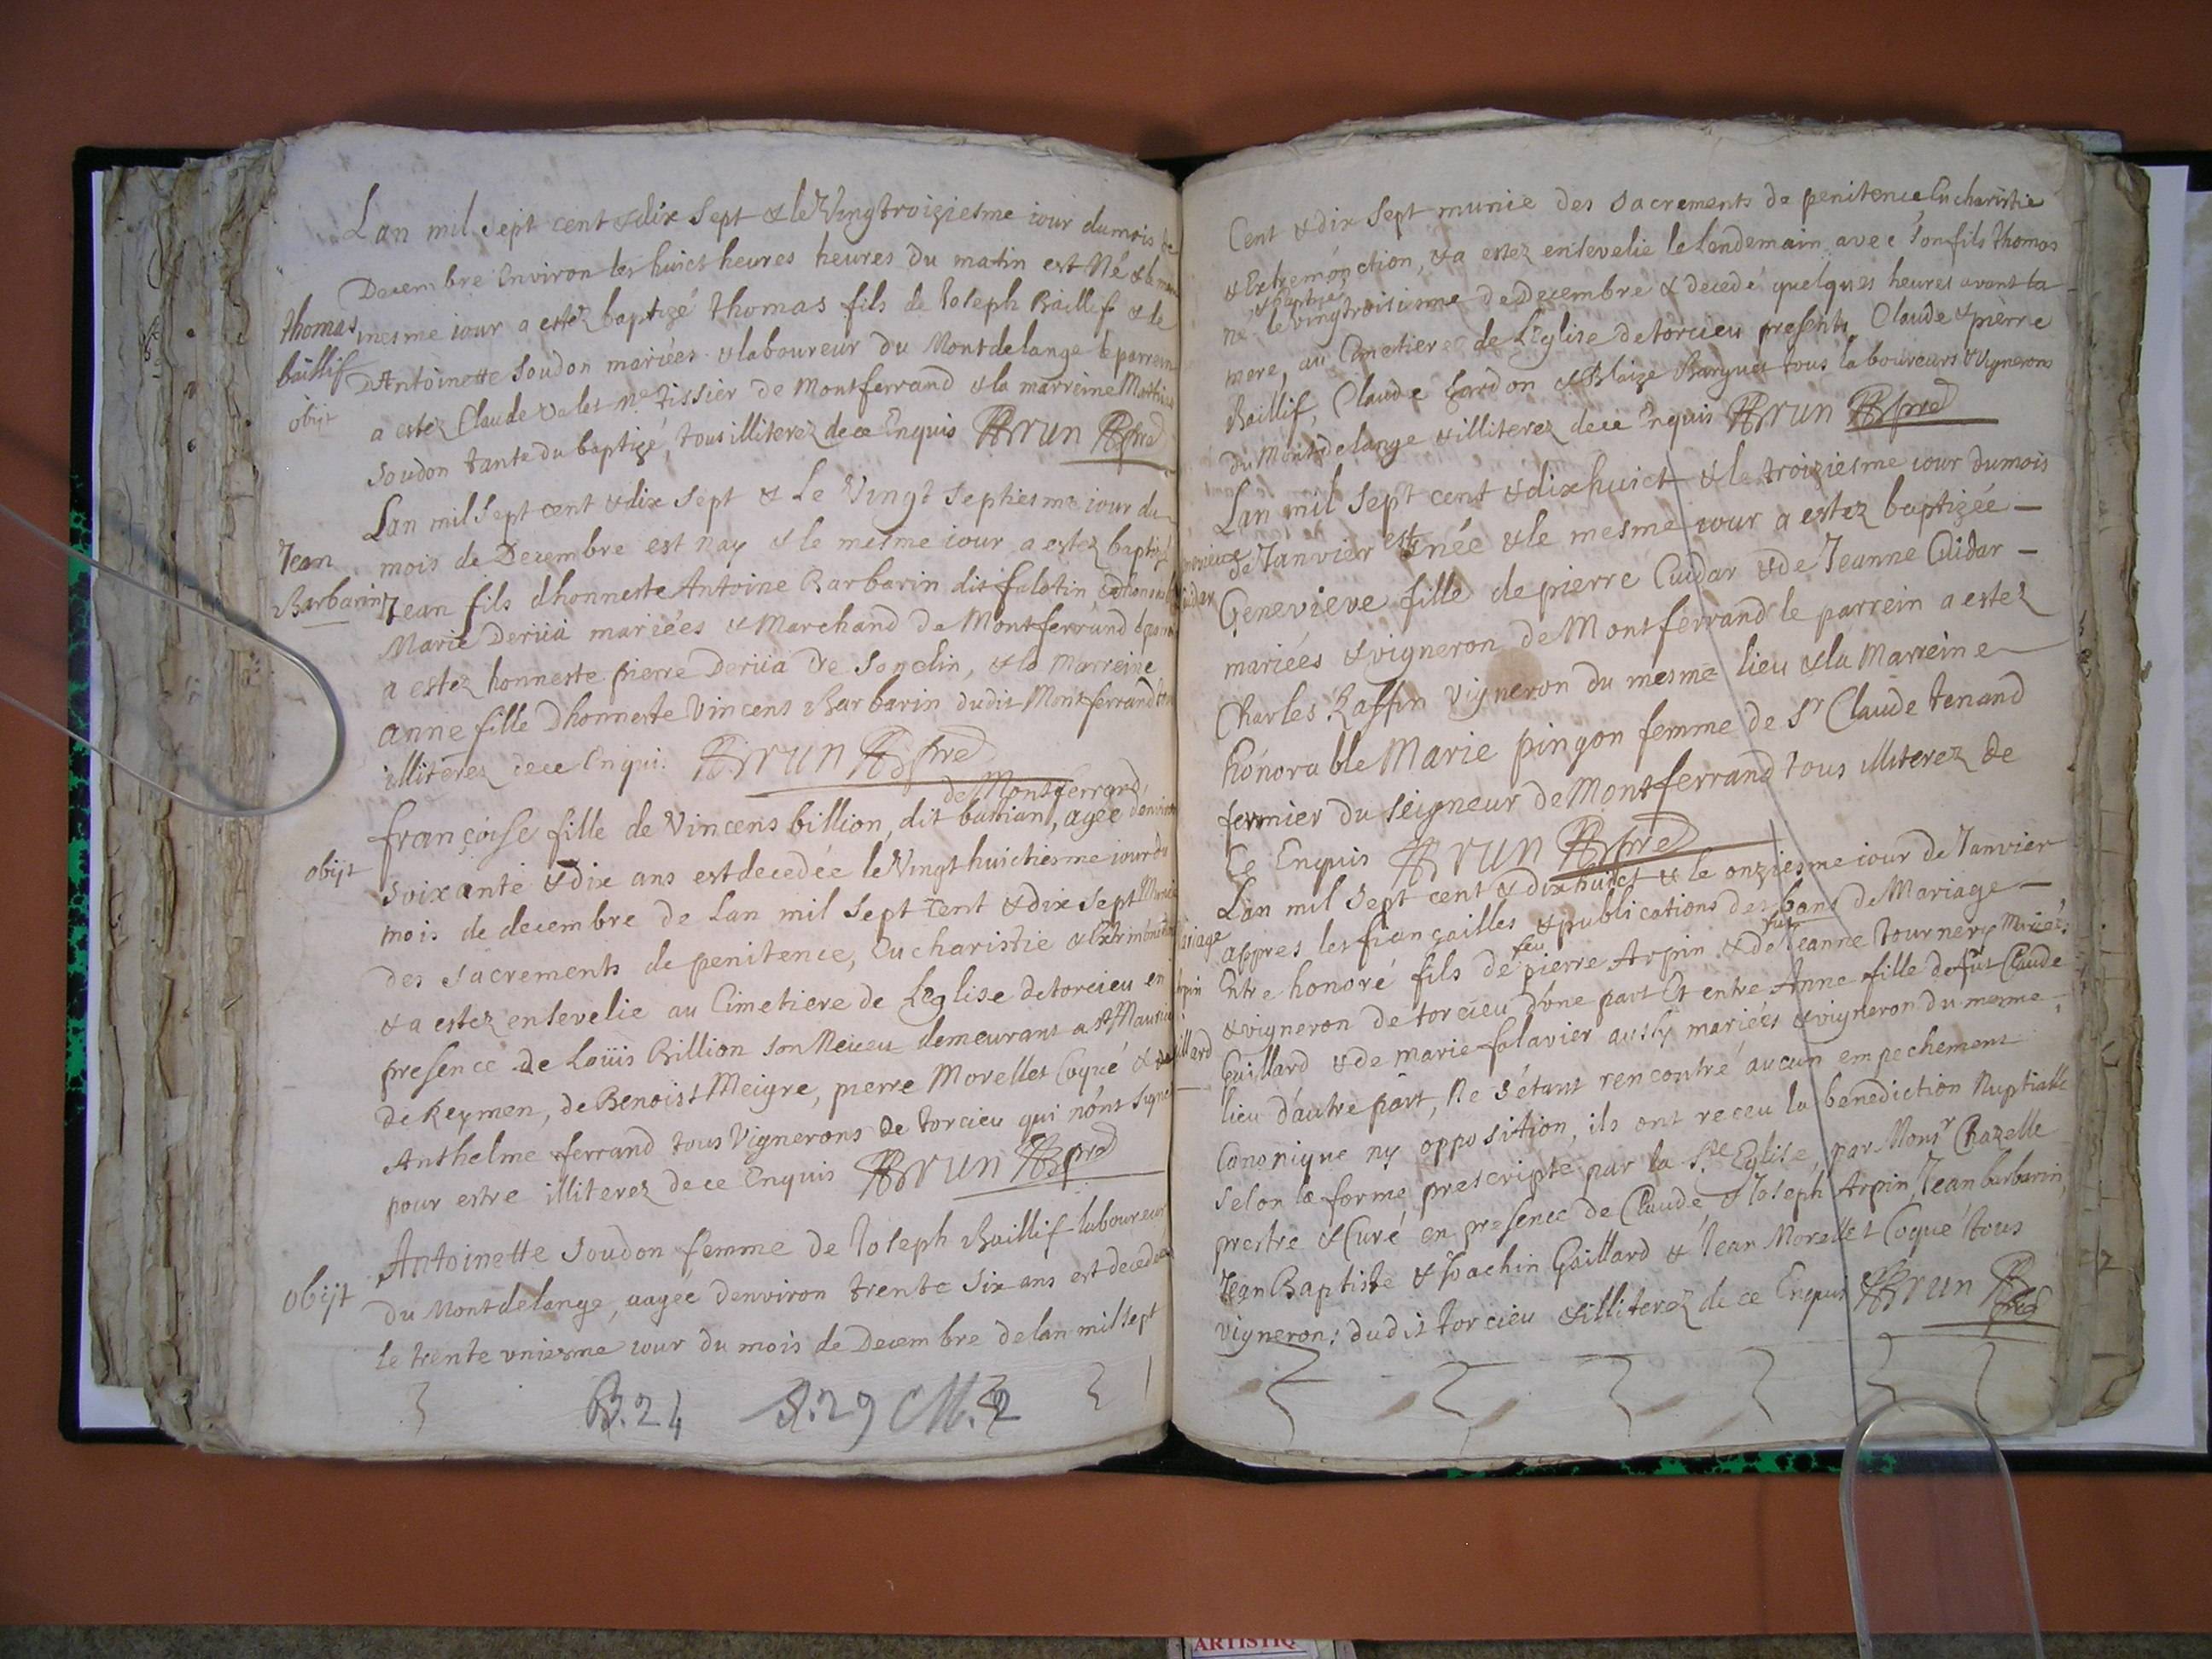 Lan mil sept cent & dix sept & le Vingtroiziesme iour du mois de
Decembre Environ les huict heures heures du matin est Né & le
mesme iour a estez baptizé thomas fils de Ioseph Baillif & de
thomas
baillif
obijt
DAntoinette Soudon mariées & laboureur du Montdelange le parrein
a estez Claude valet me Tissier de Montferrand & la marreine
Soudon tante du baptizé, tous illiterez de ce Enquis BRUN pre
Lan mil Sept cent & dix Sept & Le Vingt Septiesme iour du
mois de Decembre est nay & le mesme iour a estez baptizé
Jean
Barbarin
Jean fils dhonneste Antoine Barbarin dit falotin,
Marie Deriia mariées & Marchand de Montferrand
a estez honneste pierre Deriia de Sonclin, & la Marreine
anne fille Dhonneste Vincens Barbarin dudit Montferrand
illiterez de ce Enquis BRUN pre
de Montferrand
françoise fille de Vincens billion, dit bastian, agée denviron
obijt
Soixante & dix ans est decedée le Vingt huictiesme iour du
mois de decembre de Lan mil Sept Cent & dix Sept
des Sacrements de penitence, Eucharistie &
& a estez ensevelie au Cimetiere de Leglise de torcieu en
presence de Loüis Billion son Neveu demeurans a St Maurice
de Reymen, de Benoist Meigre, pierre Morellet Coqué &
Anthelme ferrand tous Vignerons de torcieu qui nónt Signé
pour estre illiterez de ce Enquis BRUN pre
Antoinette Soudon femme de Ioseph Baillif laboureur
obijt
du Montdelange, aagée denviron trente Six ans est decedée
le trente vniesme iour du mois de Decembre de lan mil Sept
B.24 S.29 M.2
Cent & dix Sept munie des Sacrements de penitence, Eucharistie
& Extremónction, & a estez ensevelie le Lendemain avec Son fils thomas
& baptizé
né le vingtroisiesme de Decembre & decedé quelques heures avant la
mere, au Cimetiere de Leglise de torcieu presents Claude & pierre
Baillif, Claude Soudon & Blaize Barquet tous laboureurs & Vignerons
du Montdelange & illiterez de ce Enquis BRUN pre
Lan mil Sept cent & dix huict & le troiziesme iour du mois
de Janvier est née & le mesme iour a estez baptizée
Genevieve fille de pierre Cuidar & de Jeanne Cuidar
mariées & vigneron de Montferrand le parrein a estez
Charles Raffin vigneron du mesme lieu & la Marreine
honorable Marie pingon femme de Sr Claude tenand
fermier du Seigneur de Montferrand tous illiterez de
Ce Enquis BRUN pre
Lan mil Sept cent & dix huict & le onziesme iour de Janvier
appres les fiançailles & publications des bans de Mariage
Entre honoré fils de feu pierre Arpin & de fut Jeanne tournery Mariées
& vigneron de torcieu dóne part Et entre Anne fille de fut Claude
Gaillard & de marie falavier aussy mariées & vigneron du mesme
lieu dáutre part, Ne Sétant rencontré aucun empechement
Canonique ny opposition, ils ont receu la benediction Nuptialle
Selon la forme prescripte par la Ste Eglise, par Monsr Chazelle
prestre & Curé en presence de Claude & Ioseph Arpin, Jean barbarin,
Jean Baptiste & Joachin Gaillard & Jean Morellet Coqué tous
vignerons dudit torcieu & illiterez de ce Enquis BRUN pre
ARTISTIQ